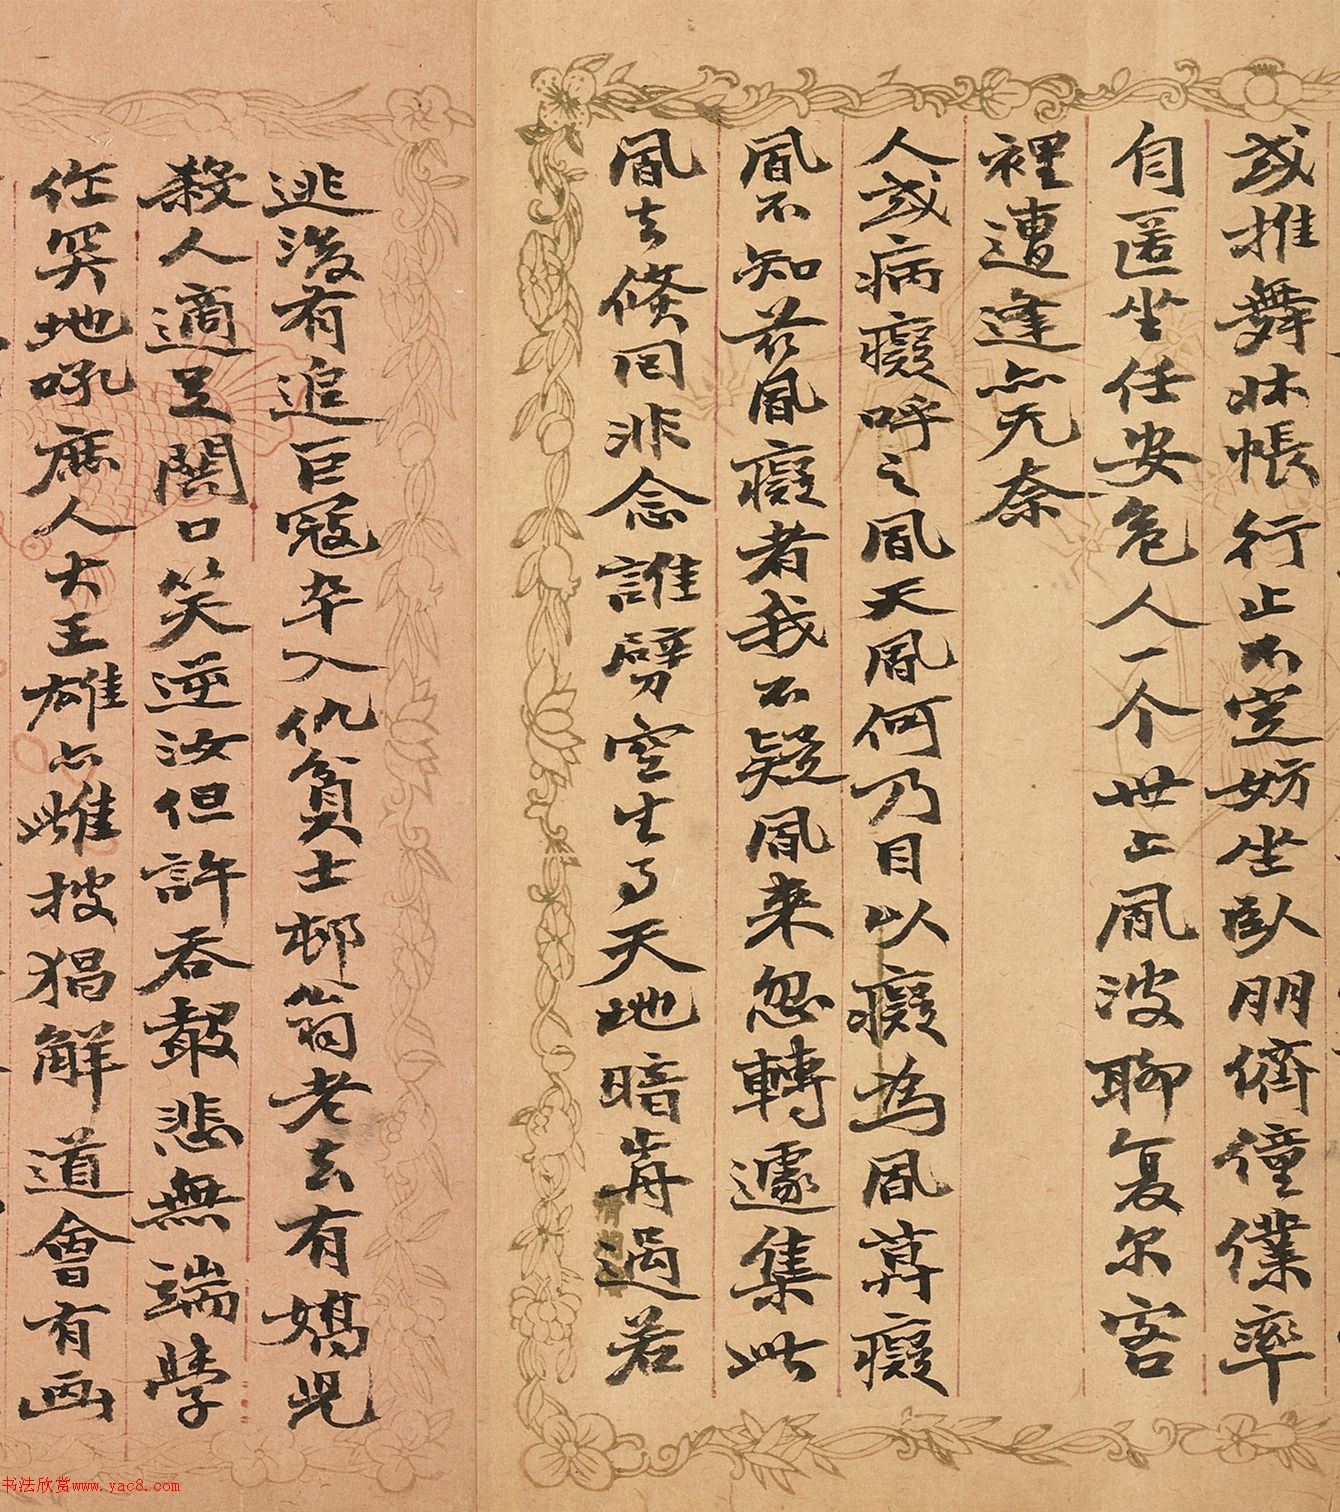 或推舞牀帳行止不定妨坐臥朋儕僮僕率
自匿坐任安危人一个世上風波聊复尔客
裡遭逢亦无奈
人或病癡呼之風天風何乃目以癡為風算癡
風不知於風癡者我不疑風来忽轉遽集此
風去倏同非念誰劈空生了天地暗嵵過若
逃後有追巨寇卒入仇貧士邨翁老去有嬌児
殺人適足開口笑逆汝但許吞聲悲無端學
作哭地吼庶人大王雄亦雌披猖解道會有两
书法欣赏www.yac8.com